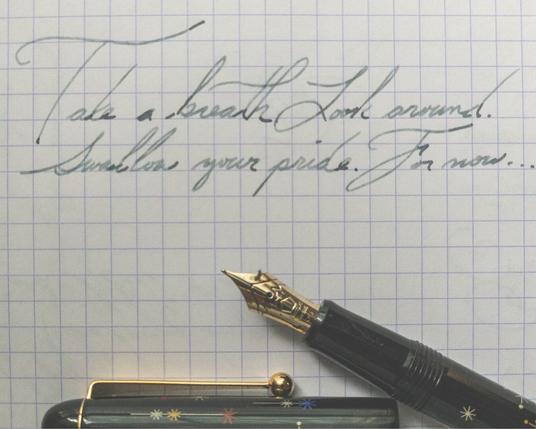 Take a breath Look around.
Swallow your pride. For now...